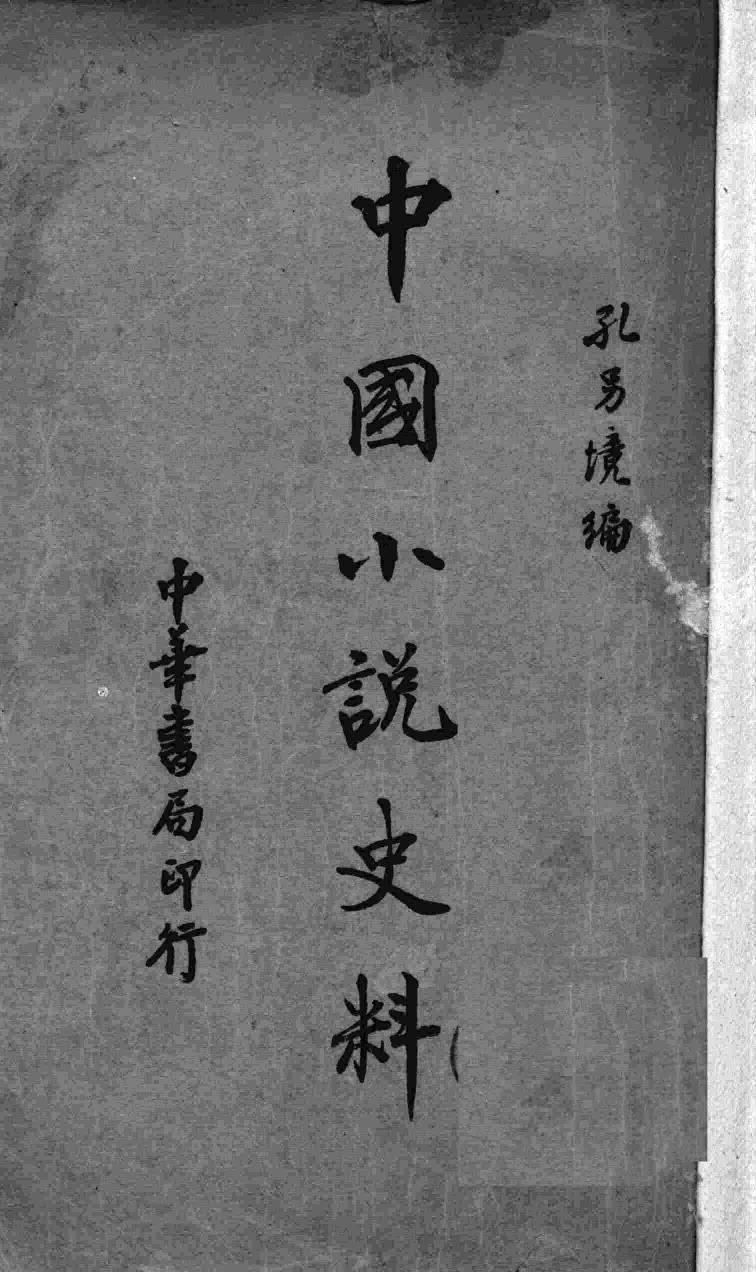 孔另境編
中國小說史料
中華書局印行